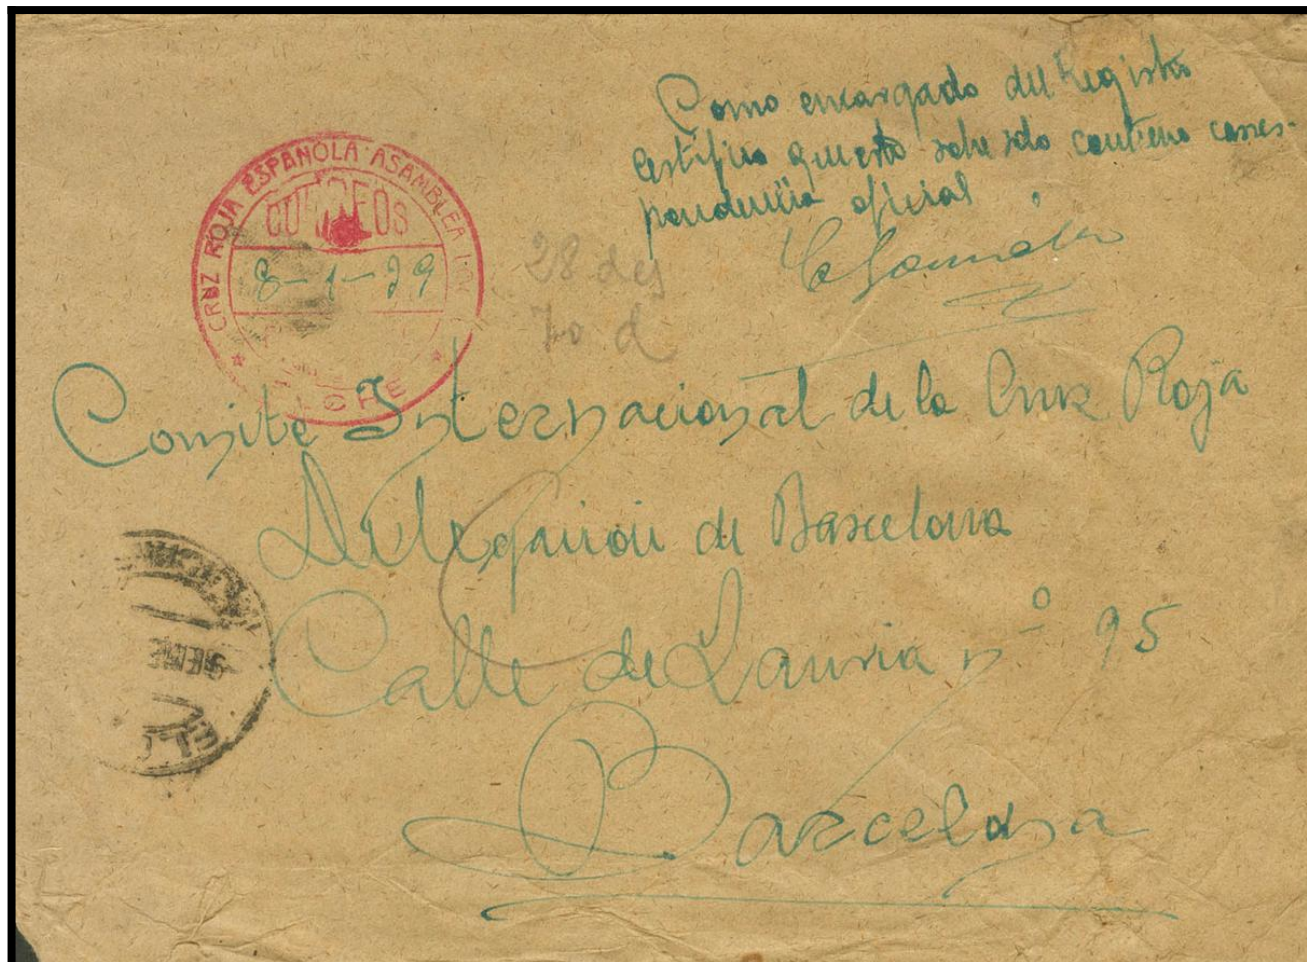 Como encargado del Registro
Certifico que este sobre solo contiene corres-
pondencia oficial
CRUZ ROJA ESPAÑOLA · ASAMBLEA
CORREOS
8-1-39
28 des
Comite Internacional de la Cruz Roja
Delegacion de Barcelona
Calle de Lauria nº 95
Barcelona